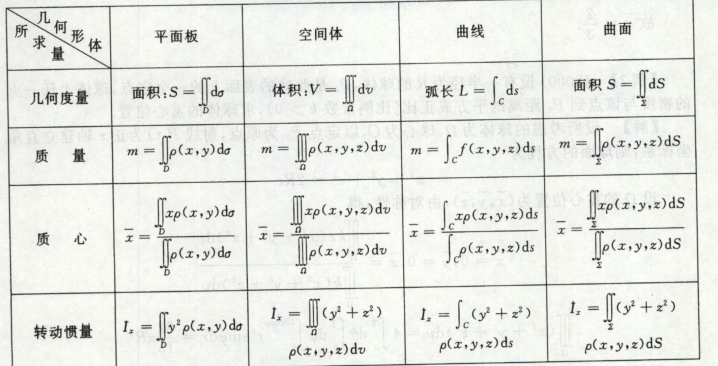 几何形体
所求量
平面板 空间体 曲线 曲面
几何度量 面积:S=∬_D dσ 体积:V=∭_Ω dv 弧长 L=∫_C ds 面积 S=∬_Σ dS
质 量 m=∬_D ρ(x,y)dσ m=∭_Ω ρ(x,y,z)dv m=∫_C f(x,y,z)ds m=∬_Σ ρ(x,y,z)dS
质 心 x̄=∬_D xρ(x,y)dσ / ∬_D ρ(x,y)dσ x̄=∭_Ω xρ(x,y,z)dv / ∭_Ω ρ(x,y,z)dv x̄=∫_C xρ(x,y,z)ds / ∫_C ρ(x,y,z)ds x̄=∬_Σ xρ(x,y,z)dS / ∬_Σ ρ(x,y,z)dS
转动惯量 I_x=∬_D y²ρ(x,y)dσ I_x=∭_Ω (y²+z²) I_x=∫_C (y²+z²) I_x=∬_Σ (y²+z²)
ρ(x,y,z)dv ρ(x,y,z)ds ρ(x,y,z)dS